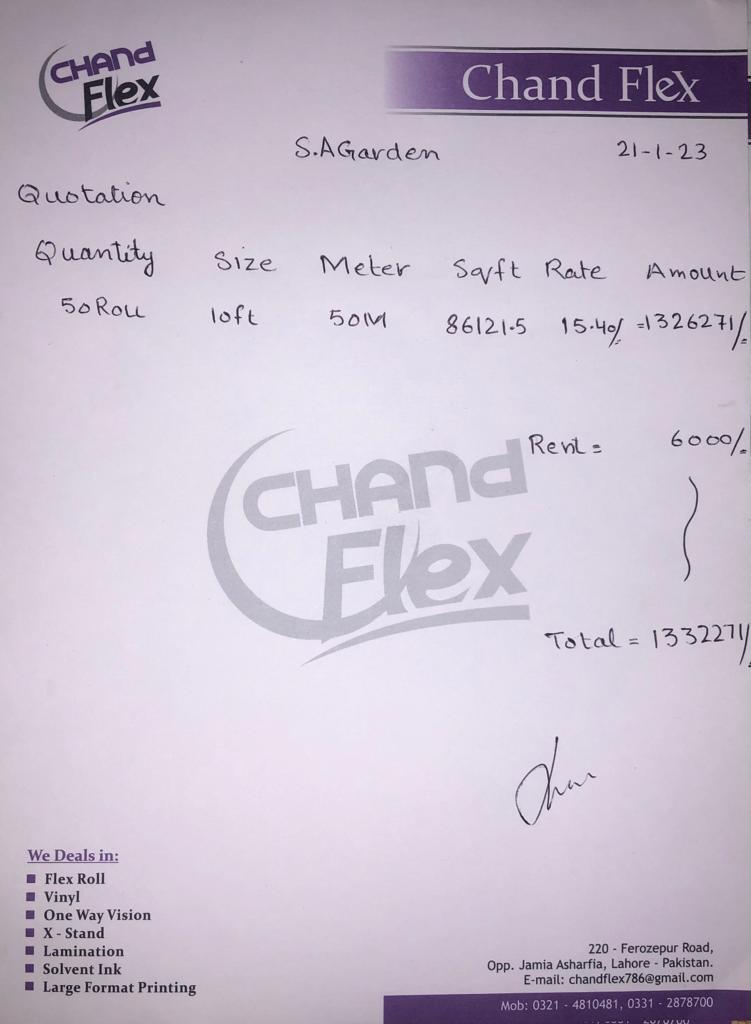 CHAND
Flex
Chand Flex
S.A Garden 21-1-23
Quotation
Quantity Size Meter Sqft Rate Amount
50 Roll 10ft 50M 86121.5 15.40/= =1326271/=
Rent = 6000/=
CHAND
Flex
Total = 1332271/=
We Deals in:
Flex Roll
Vinyl
One Way Vision
X - Stand
Lamination
Solvent Ink
Large Format Printing
220 - Ferozepur Road,
Opp. Jamia Asharfia, Lahore - Pakistan.
E-mail: chandflex786@gmail.com
Mob: 0321 - 4810481, 0331 - 2878700